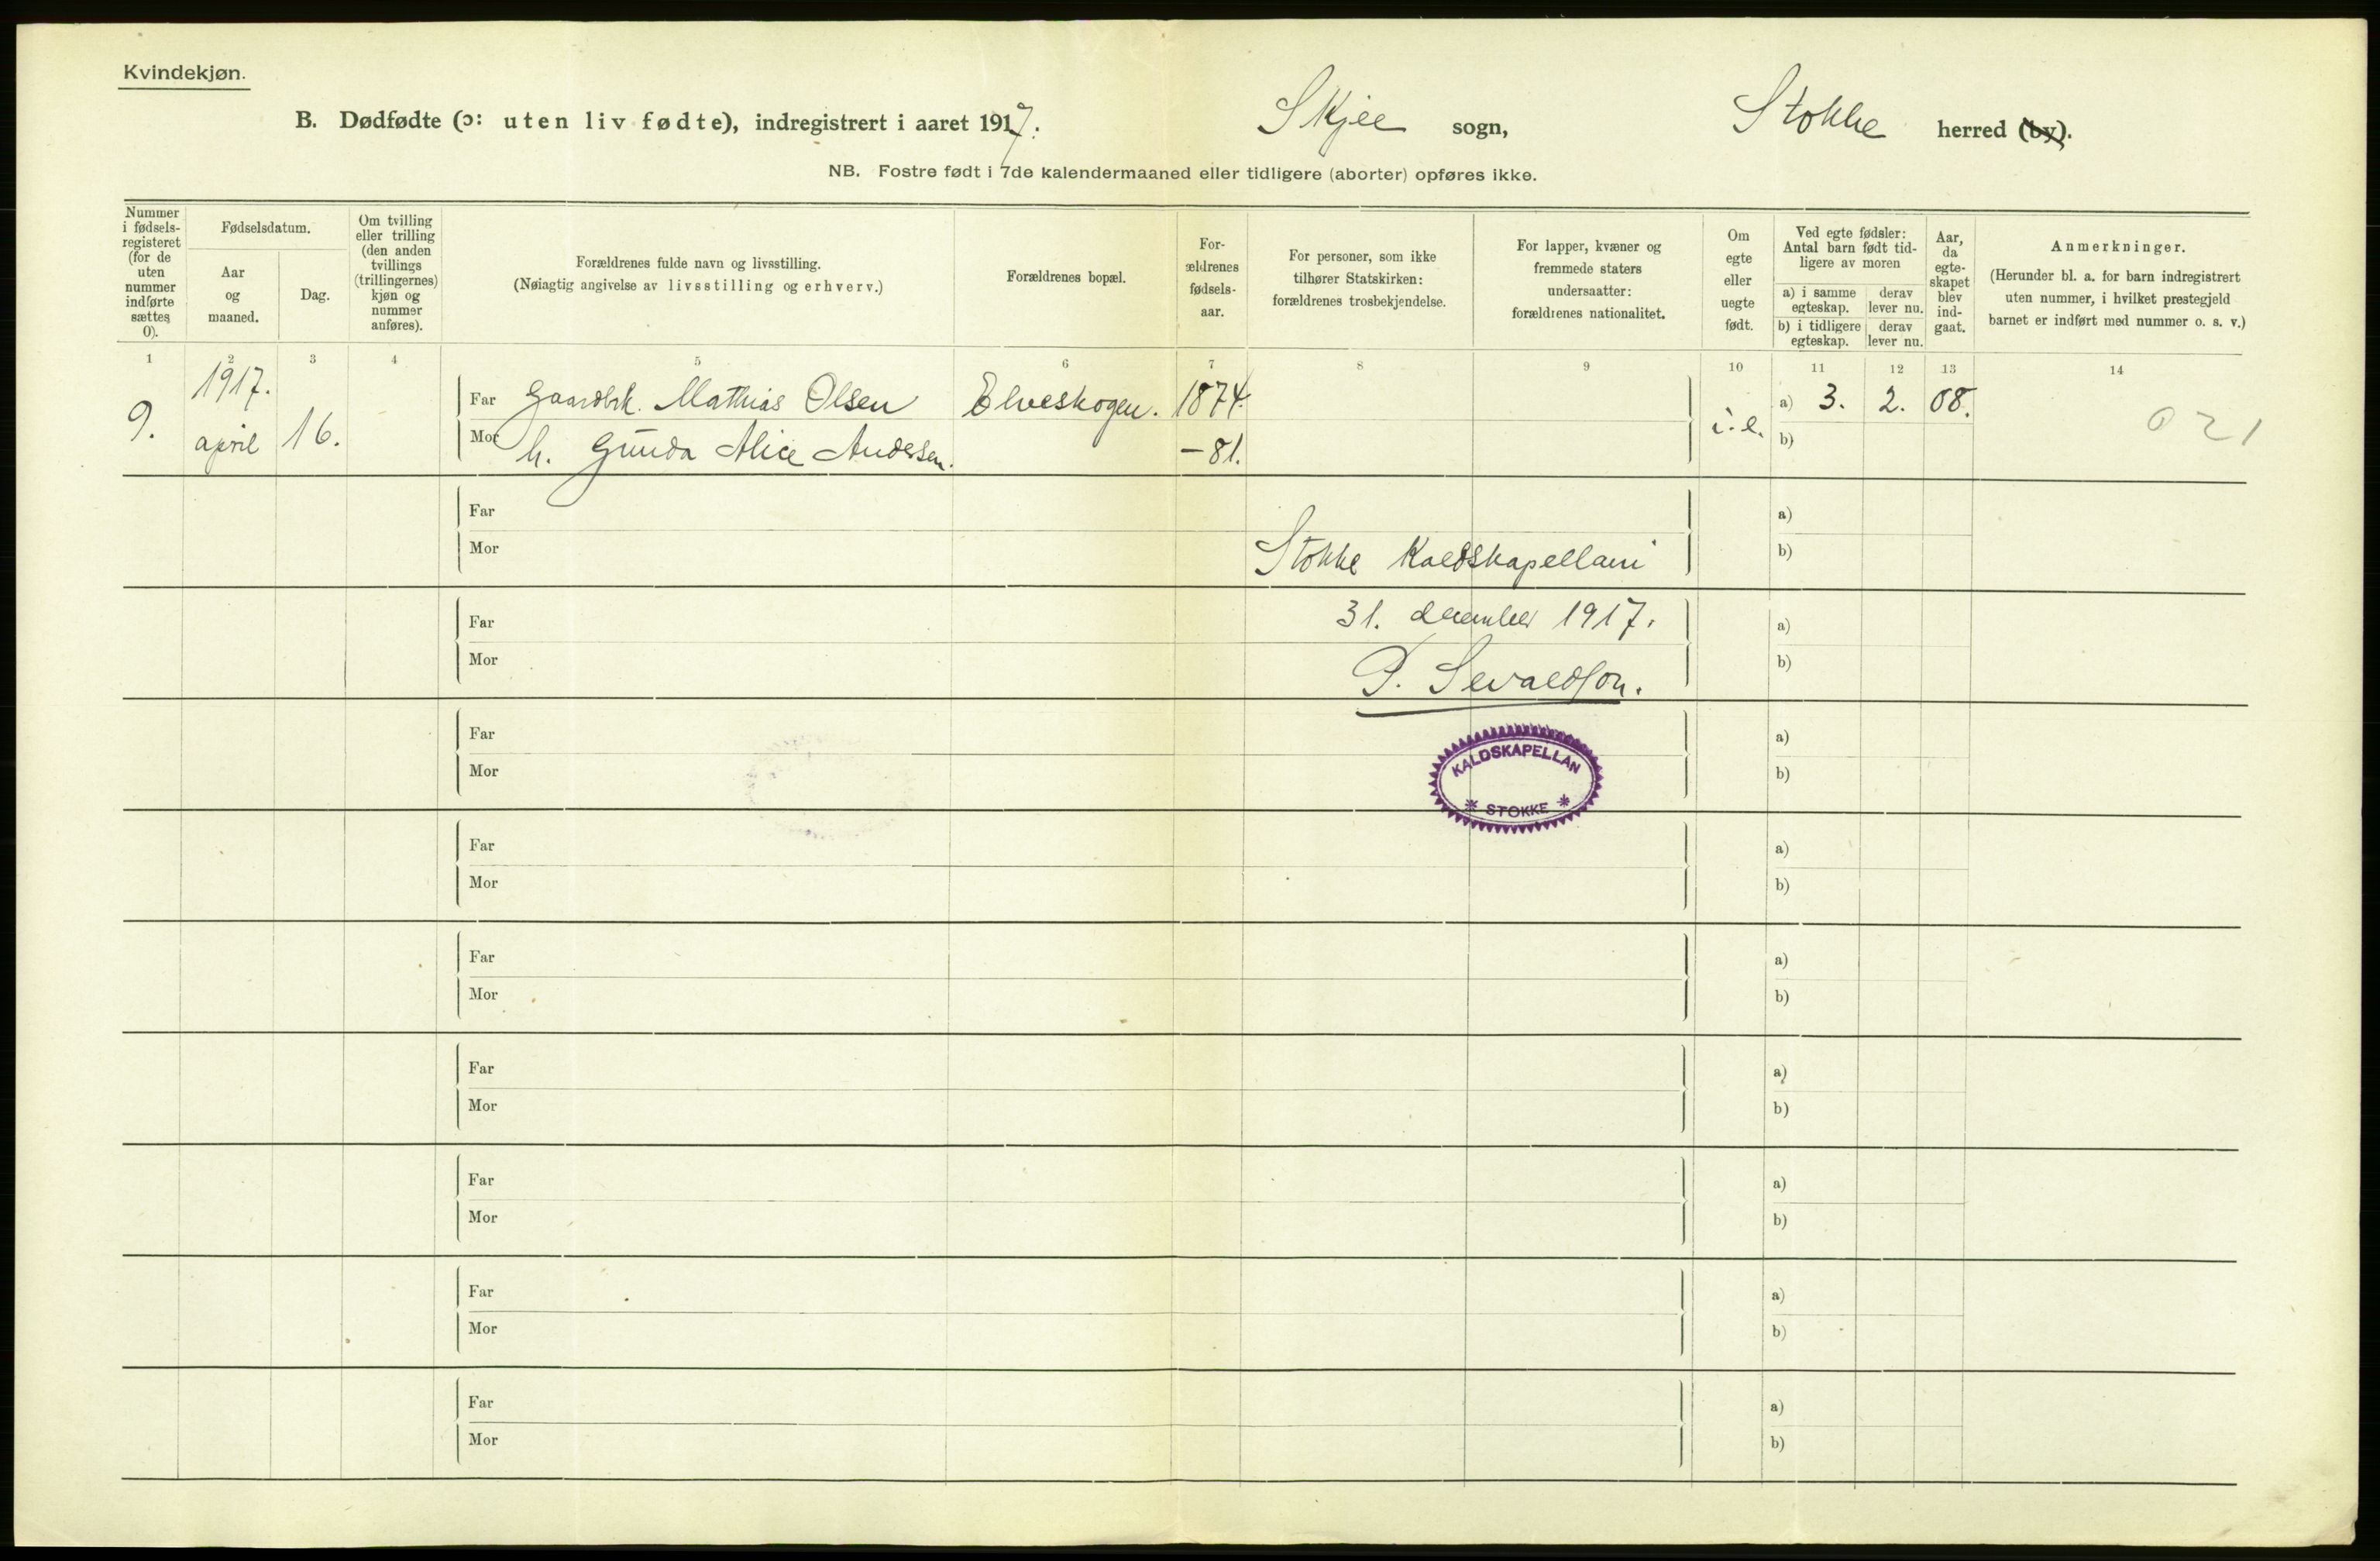 Kvindekjøn.
B. Dødfødte (ɔ: uten liv fødte), indregistrert i aaret 1917. Skjee sogn, Stokke herred (by).
NB. Fostre født i 7de kalendermaaned eller tidligere (aborter) opføres ikke.
Nummer i fødselsregisteret (for de uten nummer indførte sættes 0).
Fødselsdatum.
Aar og maaned.
Dag.
Om tvilling eller trilling (den anden tvillings (trillingernes) kjøn og nummer anføres).
Forældrenes fulde navn og livsstilling.
(Nøiagtig angivelse av livsstilling og erhverv.)
Forældrenes bopæl.
Forældrenes fødselsaar.
For personer, som ikke tilhører Statskirken: forældrenes trosbekjendelse.
For lapper, kvæner og fremmede staters undersaatter: forældrenes nationalitet.
Om egte eller uegte født.
Ved egte fødsler: Antal barn født tidligere av moren
a) i samme egteskap.
derav lever nu.
b) i tidligere egteskap.
derav lever nu.
Aar, da egteskapet blev indgaat.
Anmerkninger.
(Herunder bl. a. for barn indregistrert uten nummer, i hvilket prestegjeld barnet er indført med nummer o. s. v.)
1 2 3 4 5 6 7 8 9 10 11 12 13 14
9. 1917. april 16. i. e.
Far Gaardbr. Mathias Olsen Elveskogen. 1874. a) 3. 2. 08. 021
Mor h. Gunda Alice Andersen. -81. b)
Far a)
Mor Stokke Kaldskapellani b)
Far 31. december 1917. a)
Mor P. Sevaldson. b)
Far KALDSKAPELLAN a)
Mor * STOKKE * b)
Far a)
Mor b)
Far a)
Mor b)
Far a)
Mor b)
Far a)
Mor b)
Far a)
Mor b)
Far a)
Mor b)